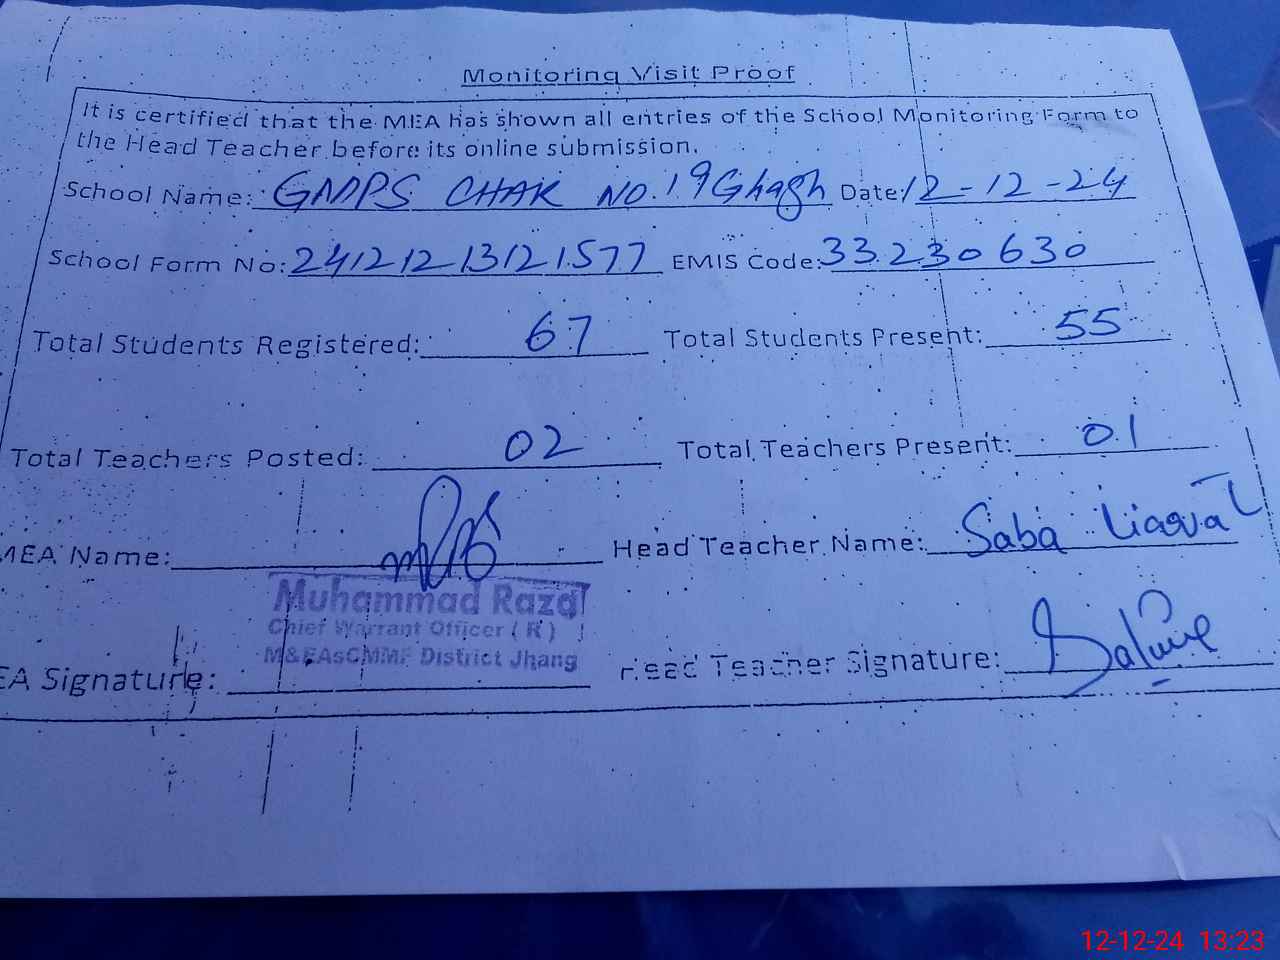 Monitoring Visit Proof
It is certified that the MEA has shown all entries of the School Monitoring Form to
the Head Teacher before its online submission.
School Name: GMPS CHAK NO.19 Ghagh Date: 12-12-24
School Form No: 24121213121577 EMIS Code: 33230630
Total Students Registered: 67 Total Students Present: 55
Total Teachers Posted: 02 Total Teachers Present: 01
MEA Name: Head Teacher Name: Saba Liaqat
Muhammad Raza
Chief Warrant Officer (R)
M&EAsCMMF District Jhang
EA Signature: Head Teacher Signature:
12-12-24 13:23